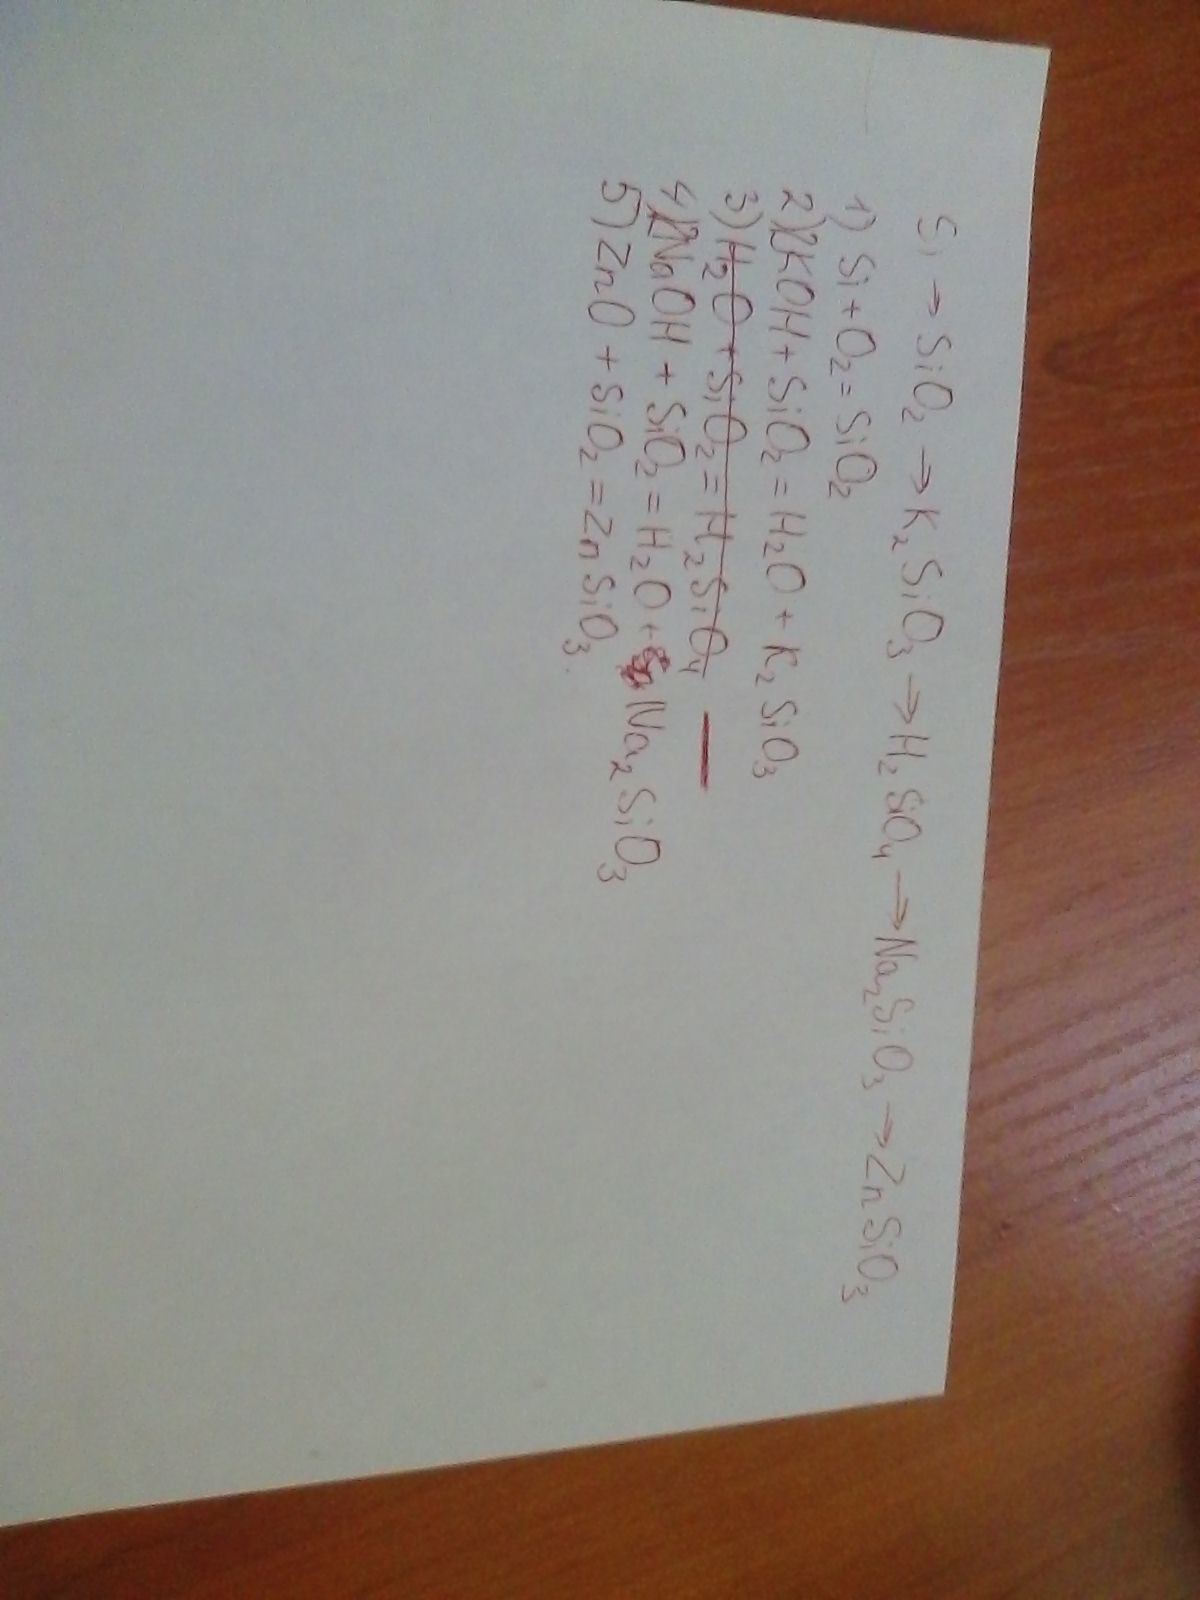 Si → SiO₂ → K₂SiO₃ → H₂SiO₄ → Na₂SiO₃ → ZnSiO₃
1) Si + O₂ = SiO₂
2) 2KOH + SiO₂ = H₂O + K₂SiO₃
3) H₂O + SiO₂ = H₂SiO₄ —
4) 2NaOH + SiO₂ = H₂O + Na₂SiO₃
5) ZnO + SiO₂ = ZnSiO₃.